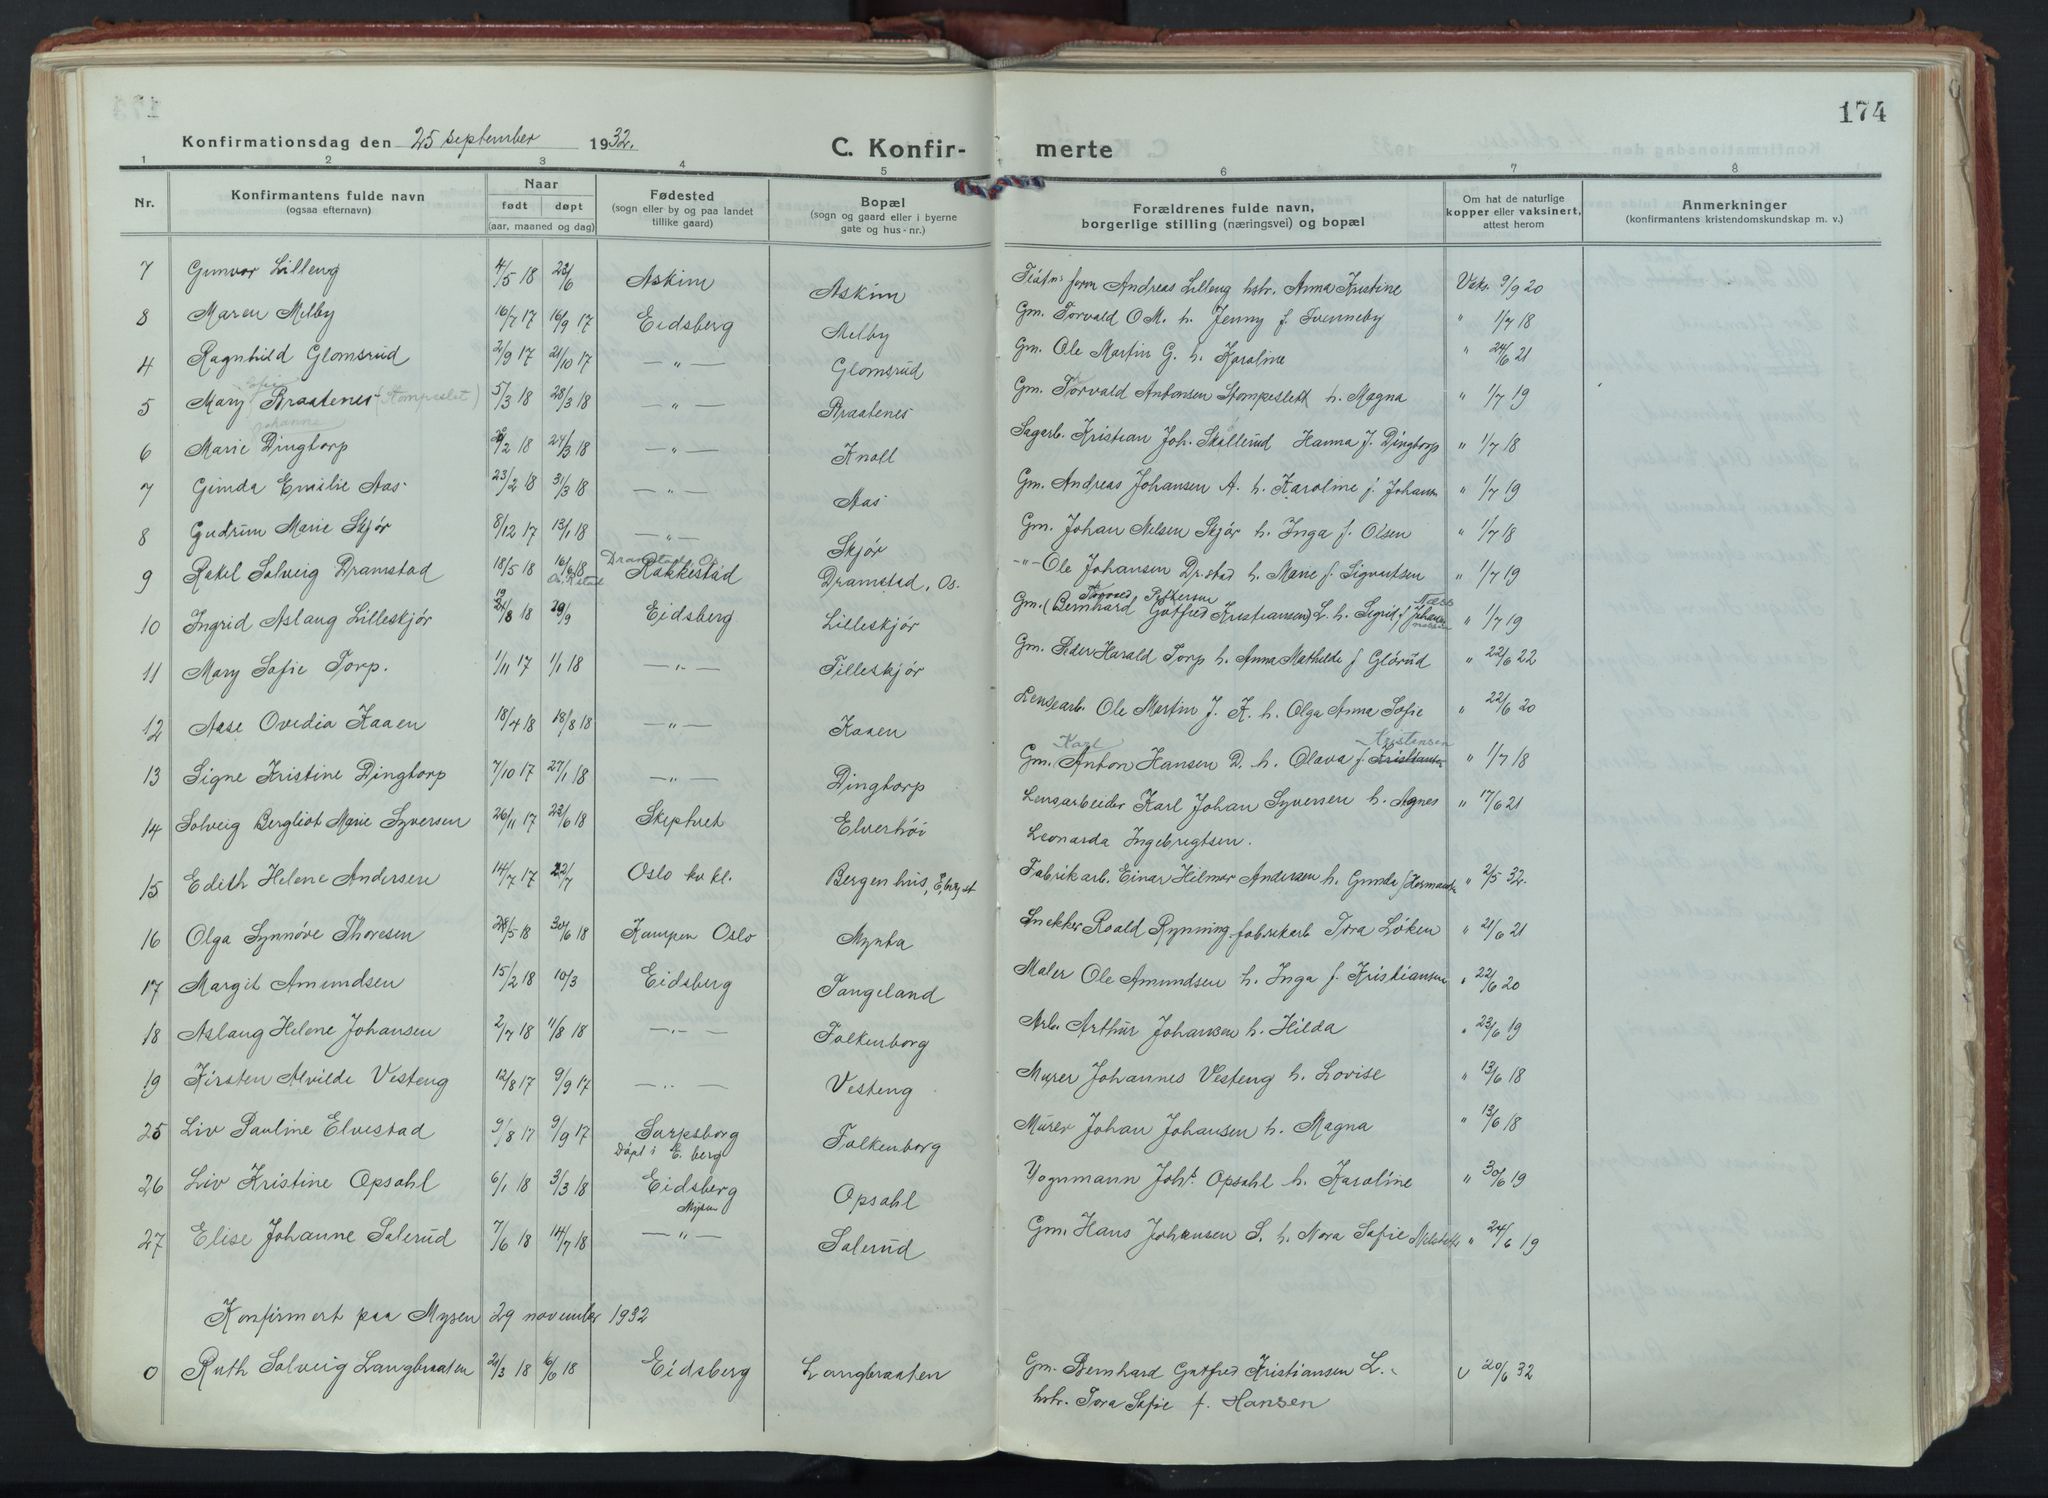 174
Konfirmationsdag den 25 september 1932.
C. Konfir- merte
1 2 3 4 5 6 7 8
Nr.
Konfirmantens fulde navn
(ogsaa efternavn)
Naar
født døpt
(aar, maaned og dag)
Fødested
(sogn eller by og paa landet
tillike gaard)
Bopæl
(sogn og gaard eller i byerne
gate og hus-nr.)
Forældrenes fulde navn,
borgerlige stilling (næringsvei) og bopæl
Om hat de naturlige
kopper eller vaksinert,
attest herom
Anmerkninger
(konfirmantens kristendomskundskap m. v.)
7 Gunvor Lilleng 4/5 18 23/6 Askim Askim form Andreas Lilleng hstr. Anna Kristine Vaks. 9/9 20
8 Maren Melby 16/7 17 16/9 17 Eidsberg Melby Gm. Torvald O M. h. Jenny f. Svenneby " 1/7 18
4 Ragnhild Glomsrud 2/9 17 21/10 17 — " — Glomsrud Gm. Ole Martin G. h. Karoline " 24/6 21
5 Mary Sofie Braatenes (Stompeslet) 5/3 18 28/3 18 — " — Braatenes Gm. Torvald Antonsen Stompeslett h. Magna " 1/7 19
Johanne
6 Marie Dingtorp 2/2 18 24/3 18 — " — Knoll Sagarb. Kristian Joh. Skallerud Hanna J. Dingtorp " 1/7 18
7 Gunda Emilie Aas 23/2 18 31/3 18 — " — Aas Gm. Andreas Johansen A. h. Karoline f. Johansen " 1/7 19
8 Gudrun Marie Skjør 8/12 17 13/1 18 — " — Skjør Gm. Johan Nilsen Skjør h. Inga f. Olsen " 1/7 18
Dramstad Os
9 Rakel Solveig Dramstad 18/5 18 16/6 18 Rakkestad Dramstad, Os. — " — Ole Johansen Dr.stad h. Marie f. Sigvartsen " 1/7 19
Torvald Pettersen Næss
10 Ingrid Aslaug Lilleskjør 8 18 29/9 Eidsberg Lilleskjør Gm. (Bernhard Gotfred Kristiansen) L. h. Sigrid f. " 1/7 19
11 Mary Sofie Torp. 1/11 17 1/1 18 — " — Lilleskjør Gm. Peder Harald Torp h. Anna Mathilde f. Glørud " 22/6 22
12 Aase Ovedia Kaaen 18/4 18 18/8 18 — " — Kaaen Lensearb. Ole Martin J. K. h. Olga Anna Sofie " 22/6 20
Karl Kristensen
13 Signe Kristine Dingtorp 7/10 17 27/1 18 — " — Dingtorp Gm. Anton Hansen D. h. Olava f. Kristiansen " 1/7 18
14 Solveig Bergliot Marie Syversen 26/11 17 23/6 18 Skiptvet Elverhöi Lensarbeider Karl Johan Syversen h. Agnes " 17/6 21
Leonarda Ingebrigtsen.
15 Edith Helene Andersen 14/7 17 22/7 Oslo kv kl. Bergenhus, E.berg st Fabrikarb. Einar Hilmar Andersen h. Gunda f Hermansen " 2/5 32.
16 Olga Synnöve Thoresen 28/5 18 30/6 18 Kampen Oslo Mynta Snekker Roald Rynning fabrikarb Tora Löken " 21/6 21
17 Margit Amundsen 15/2 18 10/3 Eidsberg Tangeland Maler Ole Amundsen h. Inga f. Kristiansen " 22/6 20
18 Aslaug Helene Johansen 2/7 18 11/8 18 — " — Folkenborg Arb. Arthur Johansen h. Hilda " 23/6 19
19 Kirsten Alvilde Vesteng 12/8 17 9/9 17 — " — Vesteng Murer Johannes Vesteng h. Lovise " 13/6 18
25 Liv Pauline Elvestad 9/8 17 9/9 17 Sarpsborg Folkenborg Murer Johan Johansen h. Magna " 13/6 18
Döpt i E. berg
26 Liv Kristine Opsahl 6/1 18 3/3 18 Eidsberg Opsahl Vognmann Joh. Opsahl h. Karoline " 30/6 19
Mysen
27 Elise Johanne Salerud 7/6 18 14/7 18 — " — Salerud Gm. Hans Johansen S. h. Nora Sofie " 24/6 19
Konfirmert paa Mysen 29 november 1932
0 Ruth Solveig Langbraaten 21/3 18 16/6 18 Eidsberg Langbraaten Gm. Bernhard Gotfred Kristiansen L. v 20/6 32
hstr. Tora Sofie f. Hansen